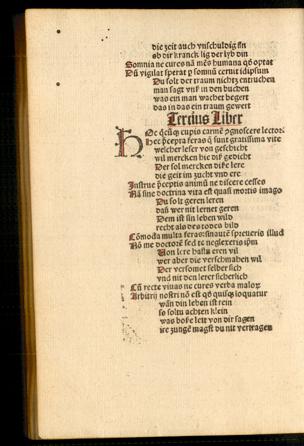 die zeit auch vnschuldig sin
ob dir kranck lig der lyb din
Somnia ne cures nā mēs humana qđ optat
Dū vigilat sperat ꝑ somnū cernit idipsum
Du solt der traum nichtz entruchen
man sagt vnß in den buchen
was ein man wachet begert
das in das ein traum gewert
Tercius Liber
HOc quicūqꝫ cupis carmē cognoscere lector
Hec ꝑcepta feras q̄ sunt gratissima vite
welcher leser von geschicht
wil mercken hie diß gedicht
Der sol mercken diße lere
die geit im zucht vnd ere
Instrue ꝑceptis animū ne discere cesses
Nā sine doctrina vita est quasi mortis imago
Du solt geren leren
das wer nit lernet geren
Dem ist sin leben wild
recht als des todes bild
Cōmoda multa feras: sinautē spreueris illud
Nō me doctorē sed te neglexeris ipm̄
Von lere hastu eren vil
wer aber die verschmahen wil
Der versomet selber sich
vnd nit den lerer sicherlich
Cū recte viuas ne cures verba maloꝝ
Arbitrij nostri nō est qđ quisqꝫ loquatur
wān din leben ist rein
so soltu achten klein
was boße leit von dir sagen
ire zunge magst du nit vertragen